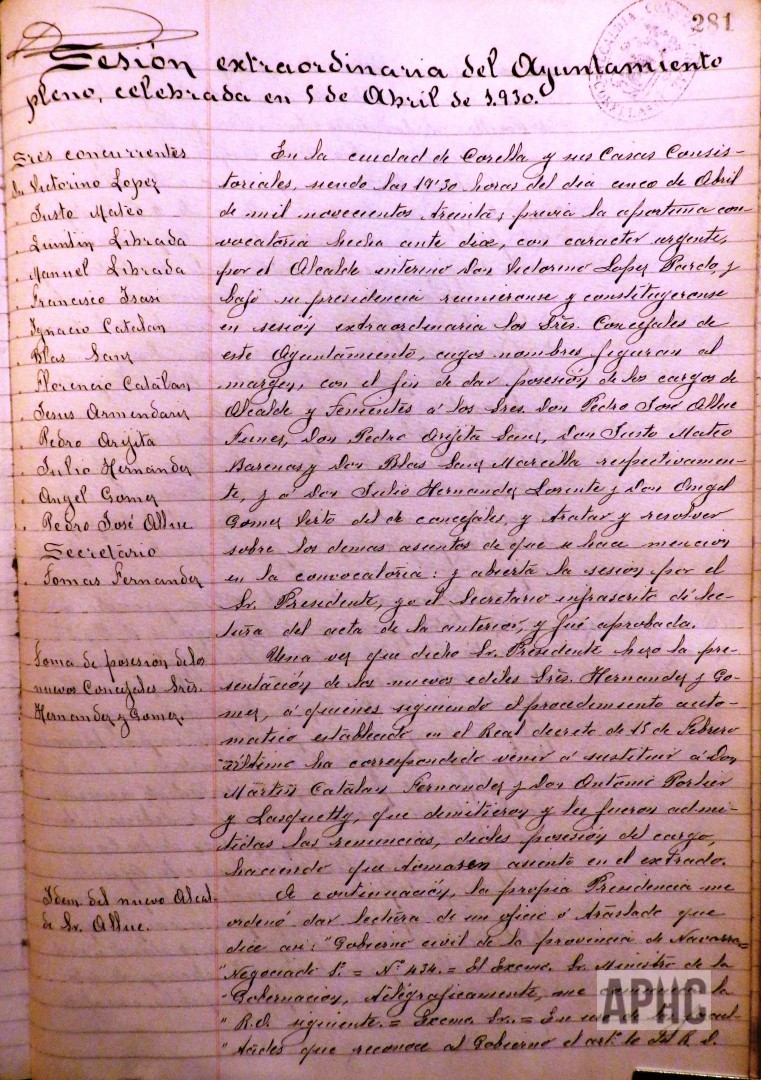 281
Sesión extraordinaria del Ayuntamiento
pleno, celebrada en 5 de Abril de 1.930.
Sres concurrentes
Dn Victorino Lopez
" Justo Mateo
" Quintin Librada
" Manuel Librada
" Francisco Isasi
" Ignacio Catalan
" Blas Sanz
" Florencio Catalan
" Jesus Armendariz
" Pedro Arejita
" Julio Hernandez
" Angel Gomez
" Pedro José Allue
Secretario
" Tomas Fernandez
En la ciudad de Corella y sus Casas Consis-
toriales, siendo las 17'30 horas del dia cinco de Abril
de mil novecientos treinta; previa la oportuna con-
vocatoria hecha ante diem, con caracter urgente,
por el Alcalde interino Don Victorino Lopez Pardo, y
bajo su presidencia reunieronse y constituyeronse
en sesión extraordinaria los Sres. Concejales de
este Ayuntamiento, cuyos nombres figuran al
margen, con el fin de dar posesión de los cargos de
Alcalde y Tenientes á los Sres. Don Pedro José Allue
Funes, Don Pedro Arejita Sanz, Don Justo Mateo
Barenas y Don Blas Sanz Marcilla respectivamen-
te, y á Don Julio Hernandez Lorente y Don Angel
Gomez Virto del de concejales, y tratar y resolver
sobre los demas asuntos de que se hace mencion
en la convocatoria: y abierta la sesión por el
Sr. Presidente, yo el Secretario infrascrito dí lec-
tura del acta de la anterior, y fué aprobada.
Toma de posesión de los
nuevos Concejales Sres.
Hernandez y Gomez.
Una vez que dicho Sr. Presidente hizo la pre-
sentación de los nuevos ediles Sres. Hernandez y Go-
mez, á quienes siguiendo el procedimiento auto-
matico establecido en el Real decreto de 15 de Febrero
último ha correspondido venir á sustituir á Don
Martin Catalan Fernandez y Don Antonio Portier
y Lasquetty, que dimitieron y les fueron admi-
tidas las renuncias, dioles posesión del cargo,
haciendo que tomasen asiento en el extrado.
Idem del nuevo Alcal-
de Sr. Allue.
A continuación, la propia Presidencia me
ordenó dar lectura de un oficio ó traslado que
dice asi: "Gobierno civil de la provincia de Navarra=
"Negociado 1º = Nº 434.= El Excmo. Sr. Ministro de la
"Gobernacion, telegraficamente, me comunica la
" R.O. siguiente.= Excmo. Sr.= En uso de las facul-
" tades que reconoce al Gobierno el artº. 1º del R. D.
APHC